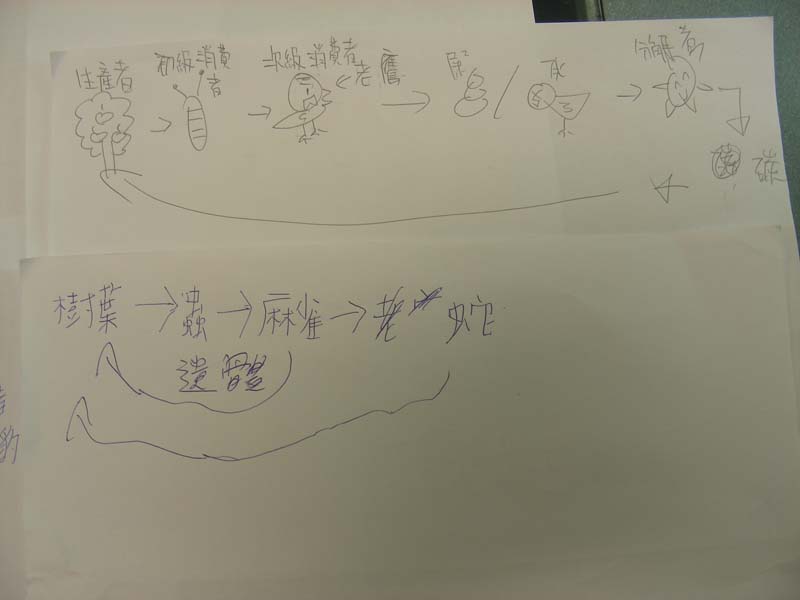 生產者 → 初級消費者 → 次級消費者 ← 老鷹 → 尸 / 死 → 分解者
碳
樹葉 → 蟲 → 麻雀 → 蛇
遺體